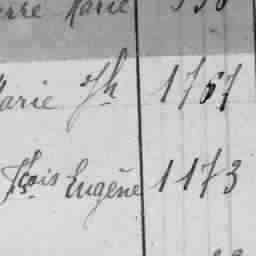 erre Marie 336
Marie Jh 1767
Fçois Eugène 1173